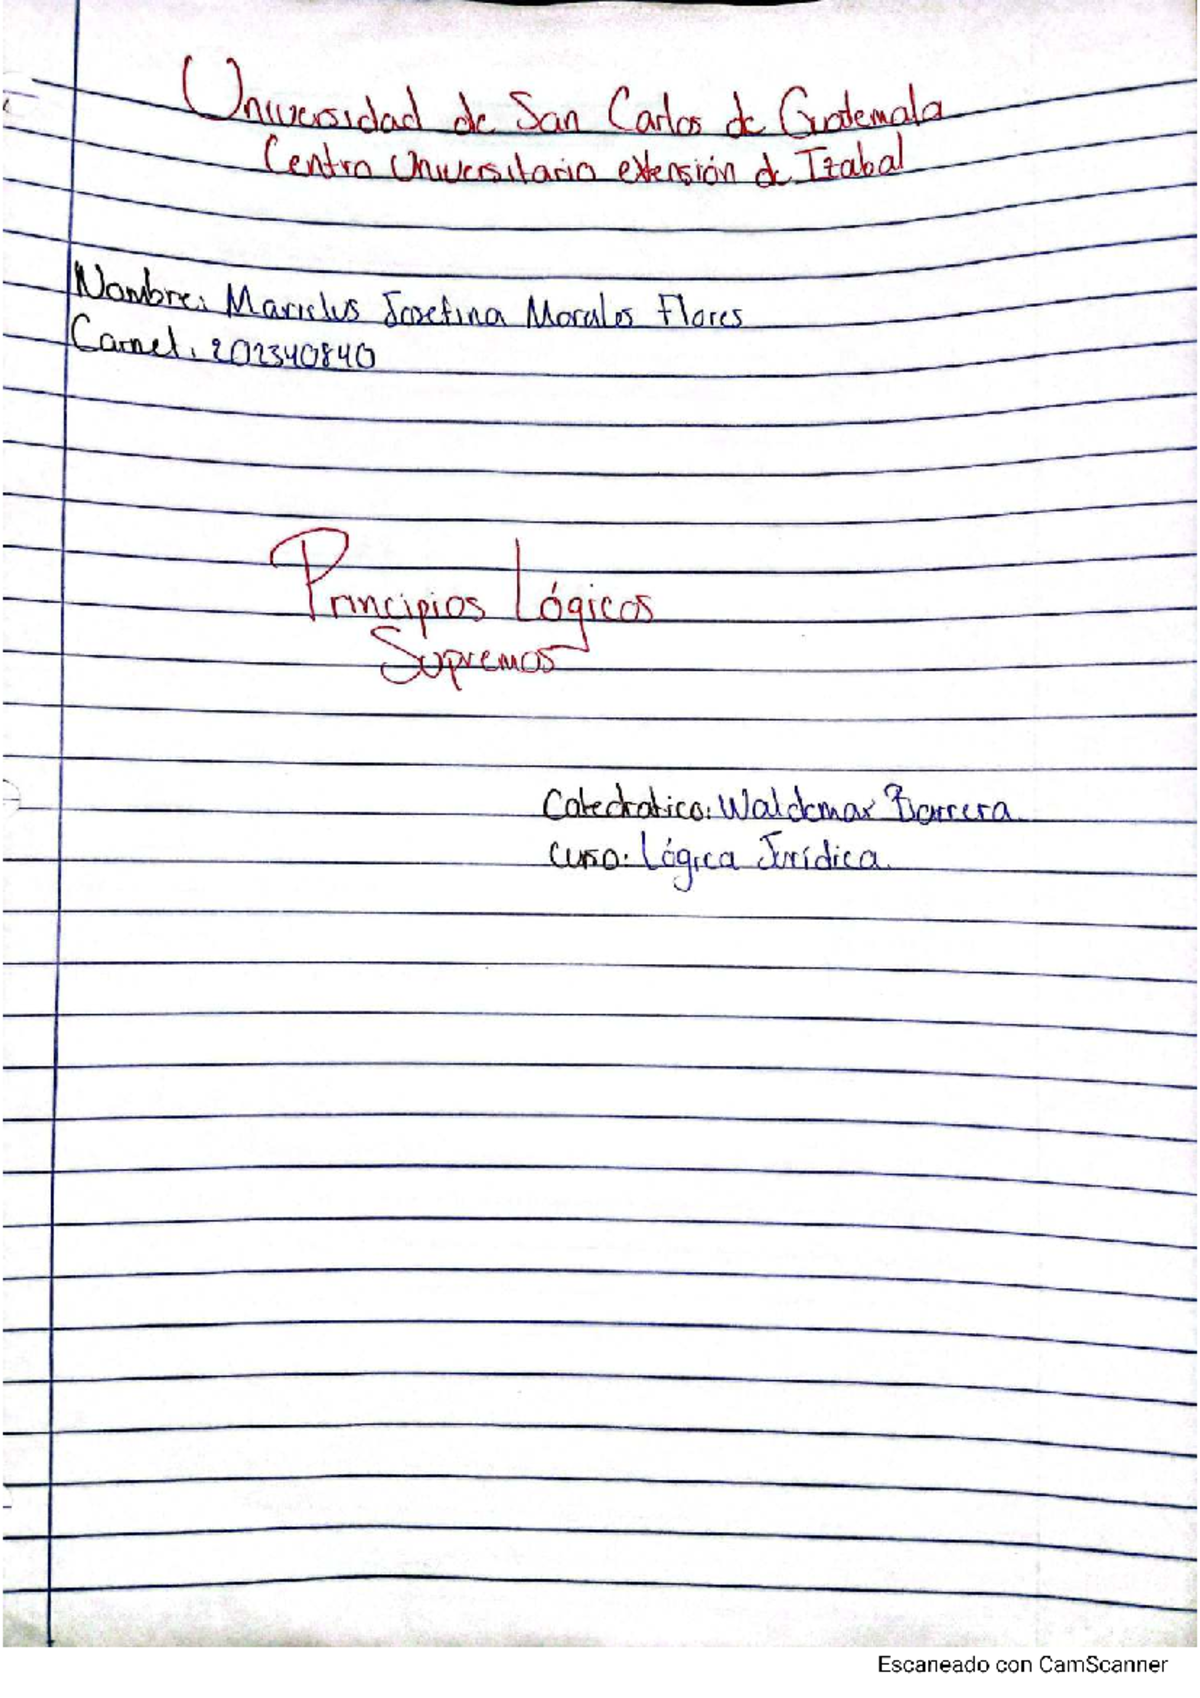 Universidad de San Carlos de Guatemala
Centro Universitario extensión de Izabal
Nombre: Marielus Josefina Morales Flores
Carnet: 202340840
Principios Lógicos
Supremos
Catedratico: Waldemar Barrera
Curso: Lógica Jurídica.
Escaneado con CamScanner